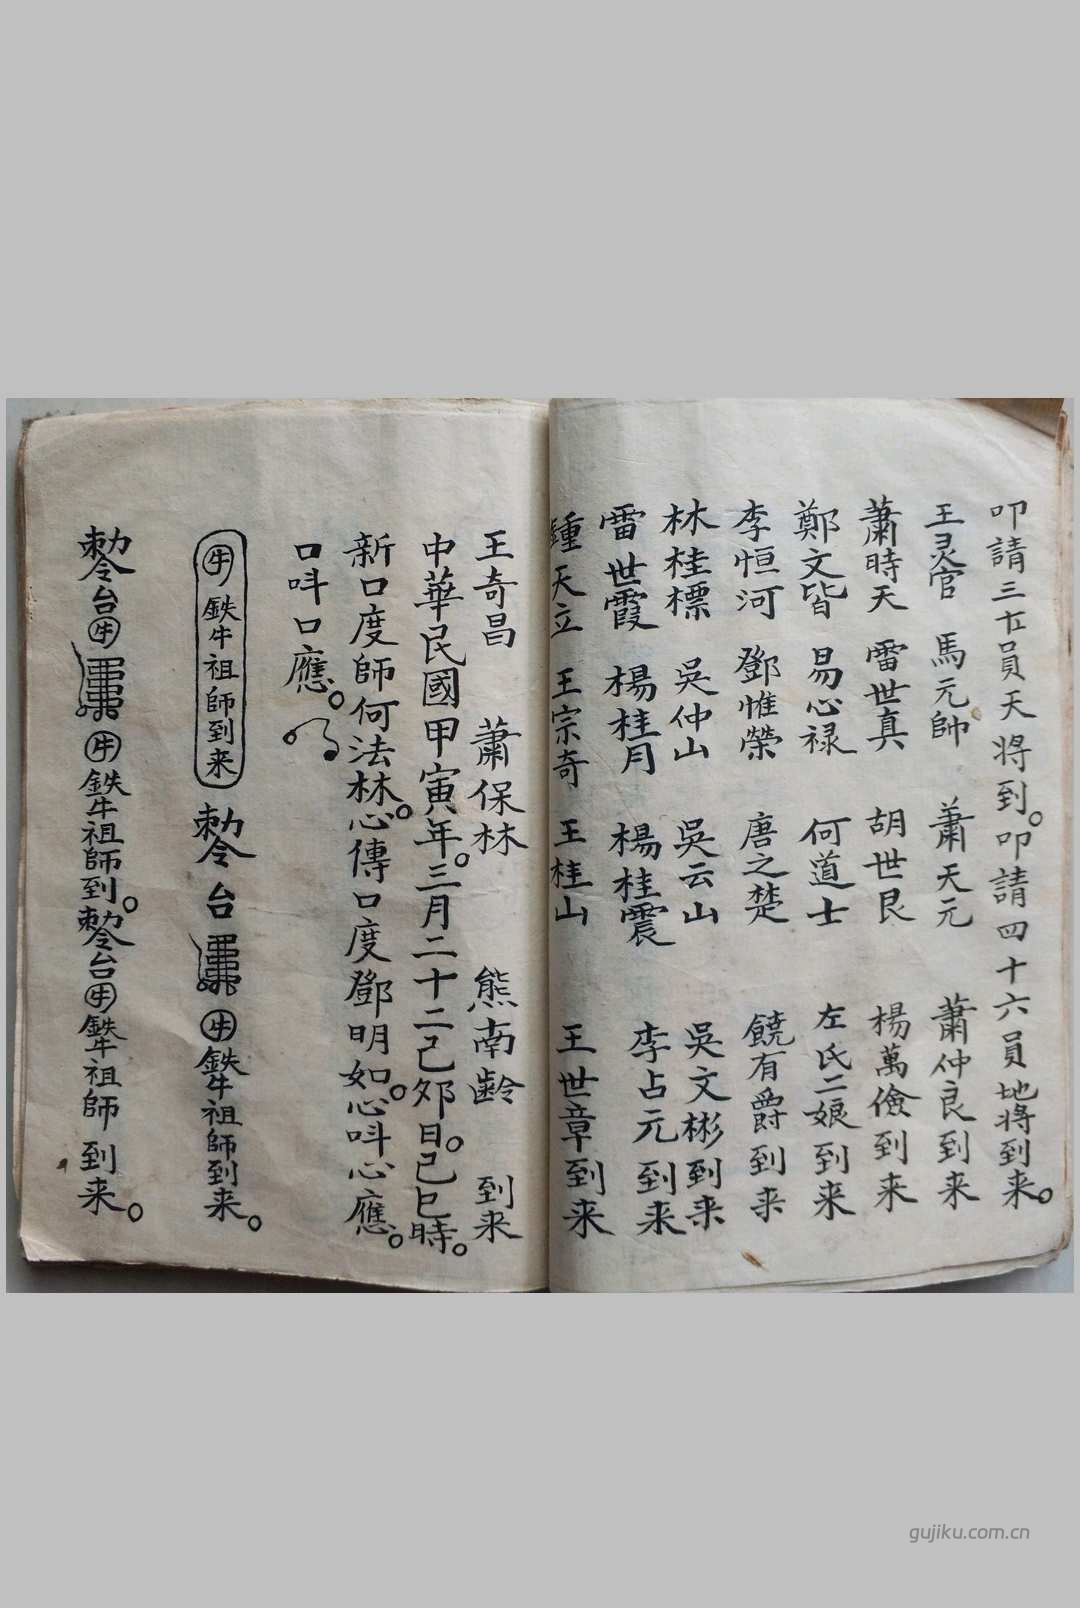 叩請三十員天將到。叩請四十六員地將到来。
王灵官 馬元帥 蕭天元 蕭仲良到来
蕭時天 雷世真 胡世艮 楊萬儉到来
鄭文皆 易心禄 何道士 左氏二娘到来
李恒河 鄧惟榮 唐之楚 饒有爵到来
林桂標 吳仲山 吳云山 吳文彬到来
雷世霞 楊桂月 楊桂震 李占元到来
鍾天立 王宗奇 王桂山 王世章到来
王奇昌 蕭保林 熊南齡 到来
中華民國甲寅年。三月二十二己夘日。己巳時。
新口度師何法林。心傳口度鄧明如。心呌心應。
口呌口應。
牛 鉄牛祖師到来 勅令台 牛鉄牛祖師到来。
勅令台牛 牛鉄牛祖師到。勅令台牛鉄牛祖師到来。
gujiku.com.cn